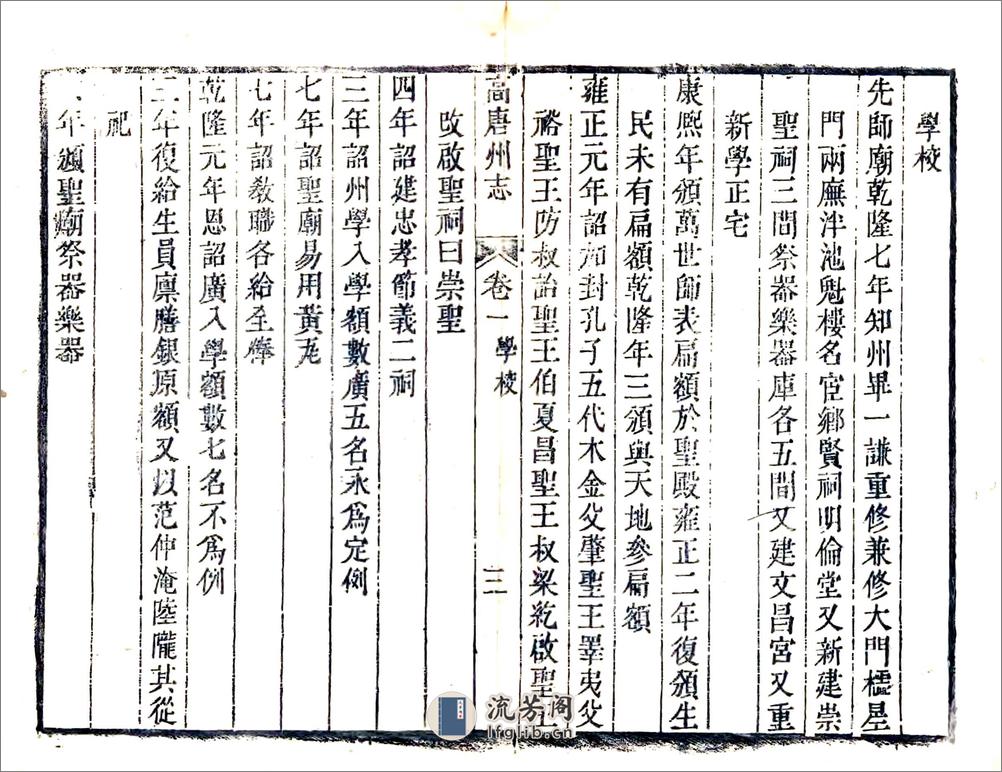 學校
先師廟乾隆七年知州畢一謙重修兼修大門櫺星
門兩廡泮池魁樓名宦鄉賢祠明倫堂又新建崇
聖祠三間祭器樂器庫各五間又建文昌宮又重
新學正宅
康熙年頒萬世師表扁額於聖殿雍正二年復頒生
民未有扁額乾隆年三頒與天地參扁額
雍正元年詔加封孔子五代木金父肇聖王睪夷父
裕聖王防叔詒聖王伯夏昌聖王叔梁紇啟聖王
高唐州志 卷一 學校 三
改啟聖祠曰崇聖
四年詔建忠孝節義二祠
三年詔州學入學額數廣五名永為定例
七年詔聖廟易用黃瓦
七年詔教職各給全俸
乾隆元年恩詔廣入學額數七名不為例
三年復給生員廩膳銀原額又以范仲淹陸隴其從
祀
年頒聖廟祭器樂器
流芳阁
lfglib.cn